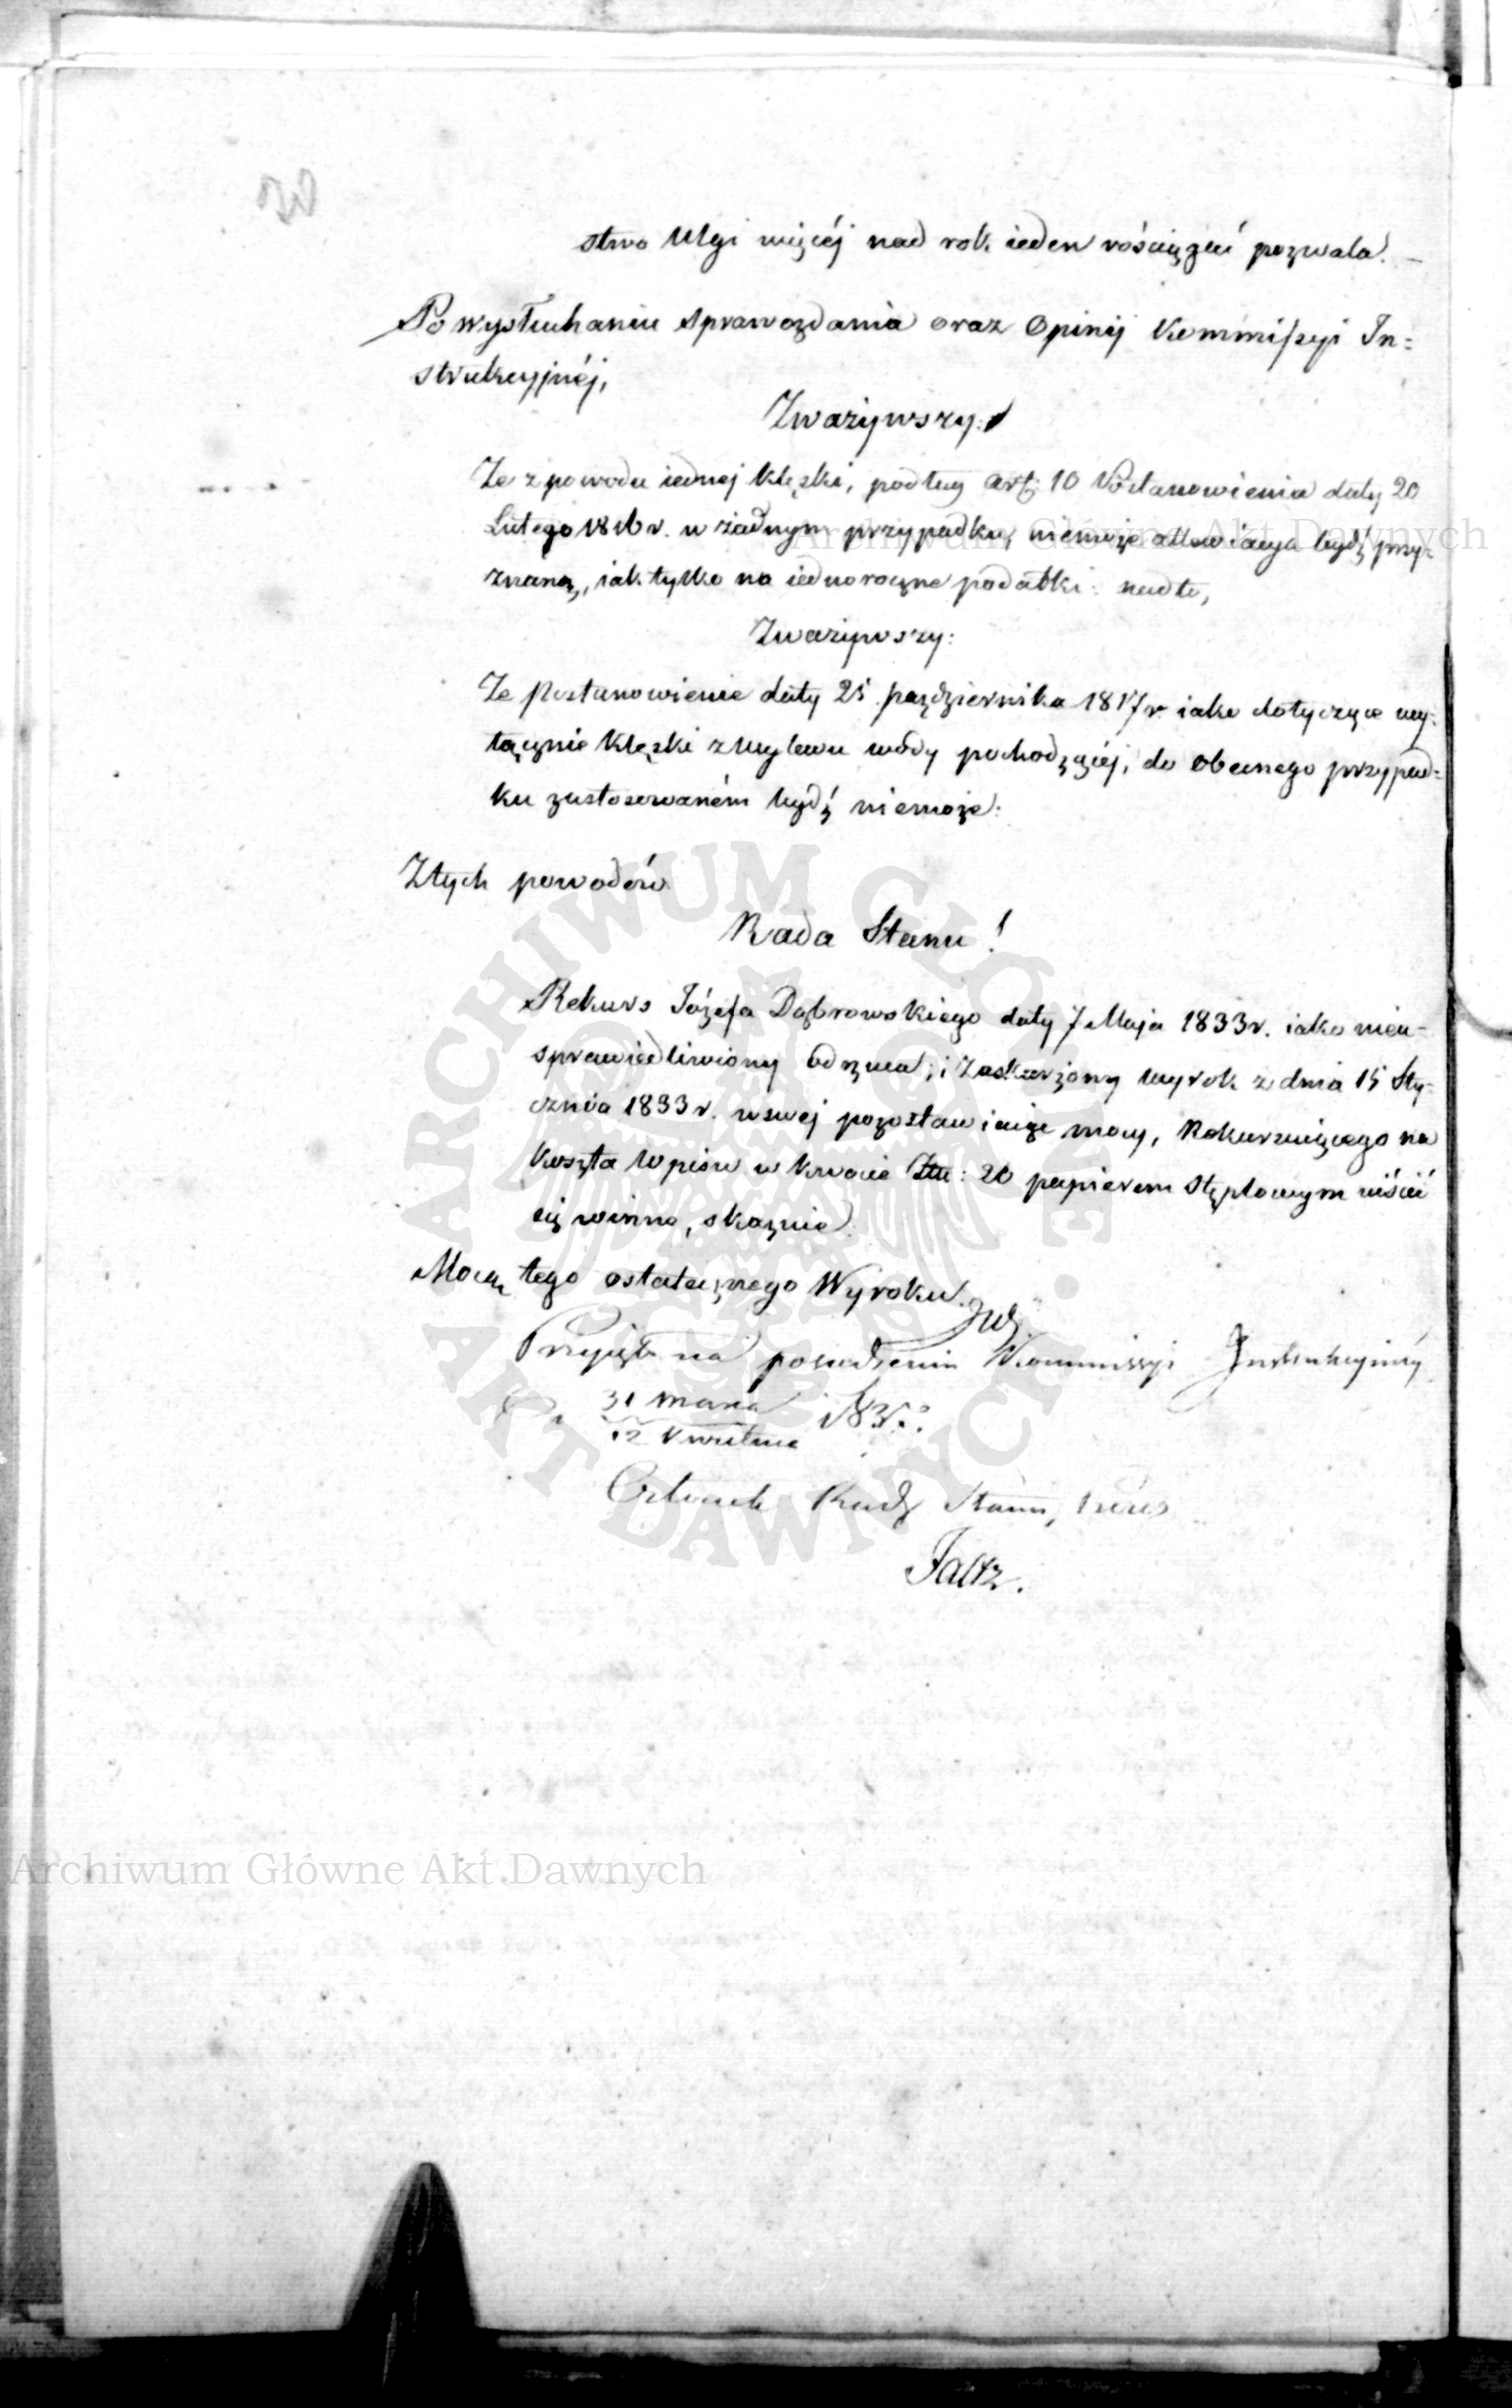 stwo Ulgi więcéj nad rok ieden rościągać pozwala. —
Po wysłuchaniu Sprawozdania oraz Opinij Kommissyi In=
strukcyjnéj,
Zważywszy:
Że z powodu iednej klęski, podług art: 10 Postanowienia daty 20
Lutego 1816 r. w żadnym przypadku, niemoże allewiacya bydź przy=
znaną, iak tylko na iednoroczne podatki: nadto,
Zważywszy:
Że Postanowienie daty 25 października 1817 r. iako dotyczące wy=
łącznie klęski z wylewu wody pochodzącéj, do obecnego przypad=
ku zastosowaném bydź niemoże:
Z tych powodów
Rada Stanu!
Rekurs Józefa Dąbrowskiego daty 7 Maja 1833 r. iako nieu=
sprawiedliwiony odrzuca; i zaskarżony wyrok z dnia 15 Sty=
cznia 1833 r. w swej pozostawiaiąc mocy, Rekurruiącego na
koszta wpisu w kwocie Złt: 20 papierem stęplowym uiścić
się winne, skazuie.
Mocą tego ostatecznego Wyroku.
Przyjęto na posiedzeniu Kommissyi Instrukcyjnéj
31 marca
12 Kwietnia
Członek Rady Stanu,
Faltz.
Archiwum Główne Akt Dawnych
Archiwum Główne Akt Dawnych
ARCHIWUM GŁÓWNE
AKT DAWNYCH